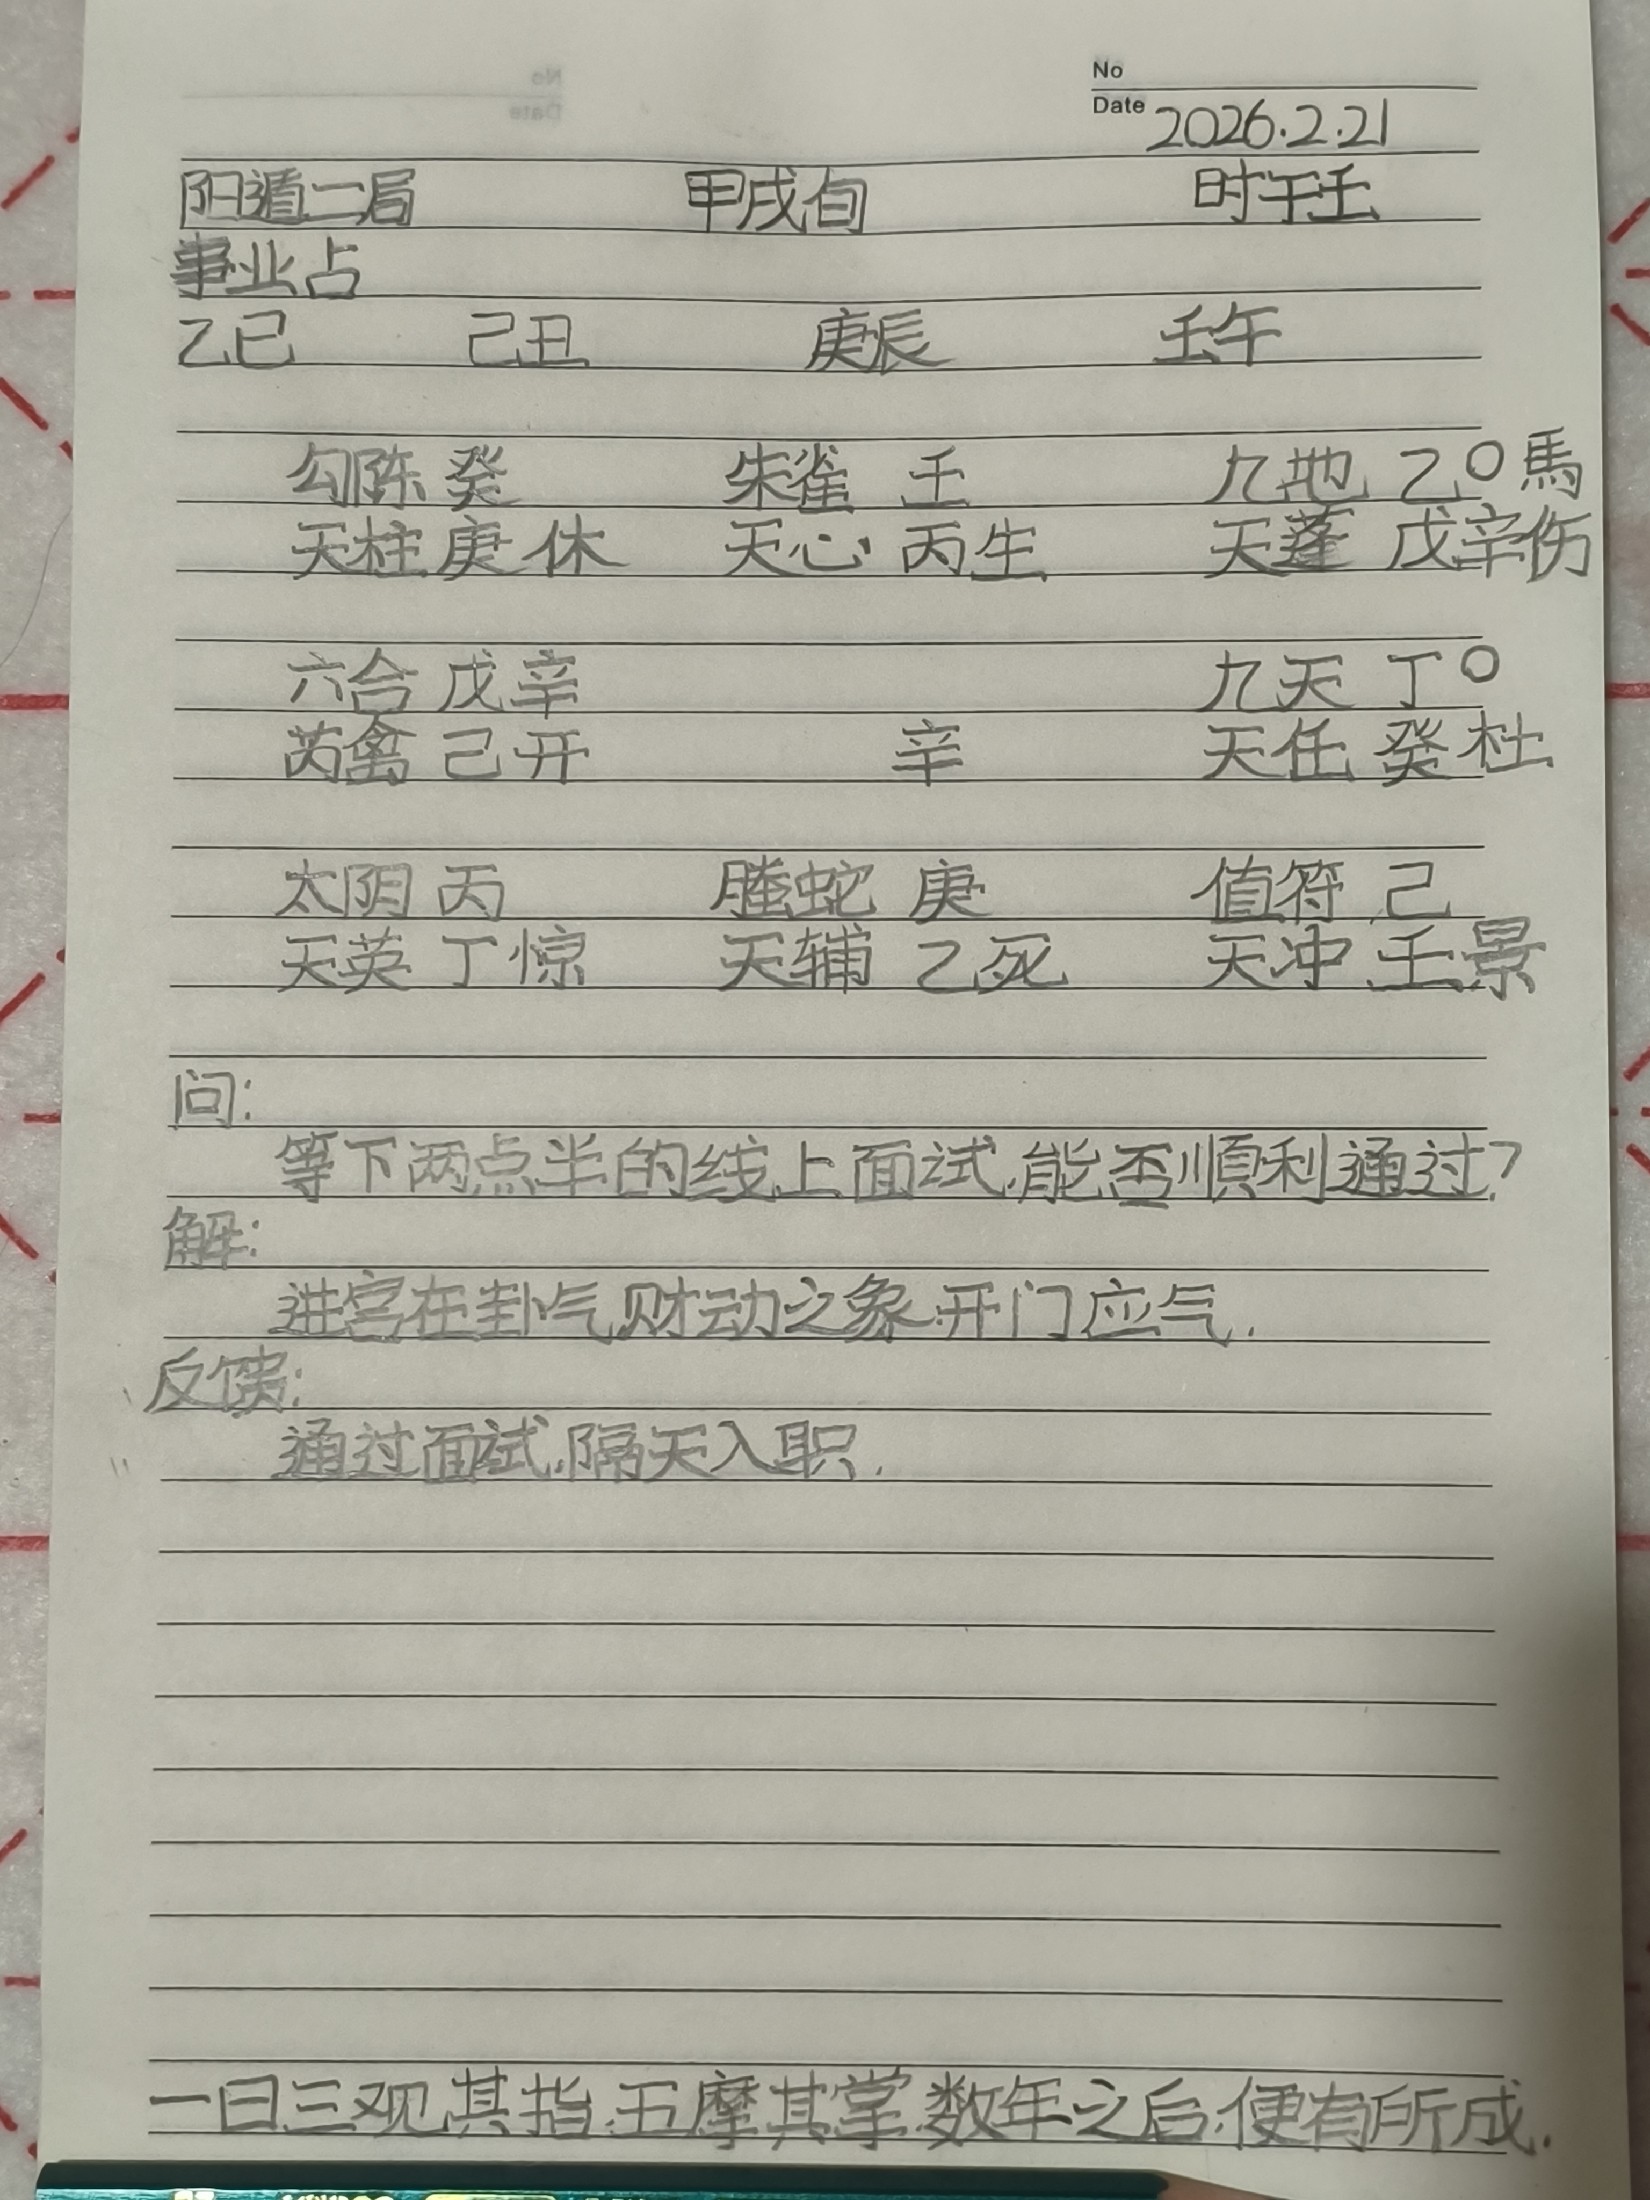 No
Date 2026.2.21
阳遁二局 甲戌旬 时干壬
事业占
乙巳 己丑 庚辰 壬午
勾陈 癸 朱雀 壬 九地 乙○馬
天柱 庚 休 天心 丙生 天蓬 戊辛伤
六合 戊辛 九天 丁○
芮禽 己开 辛 天任 癸杜
太阴 丙 螣蛇 庚 值符 己
天英 丁惊 天辅 乙死 天冲 壬景
问:
等下两点半的线上面试,能否顺利通过?
解:
进宫在卦气,财动之象.开门应气.
反馈:
通过面试,隔天入职.
一日三观其指,五摩其掌,数年之后,便有所成.